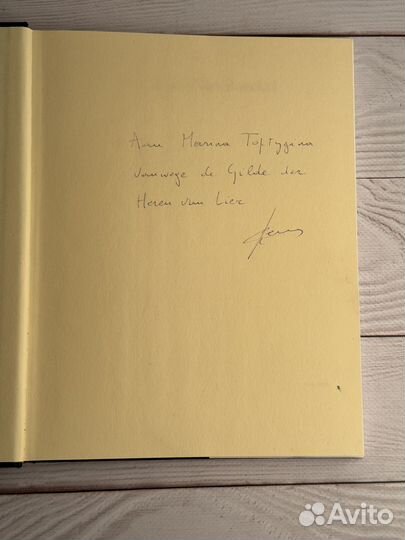 Aan Marina Toptygina
vanwege de Gilde der
Heren van Lier
Avito